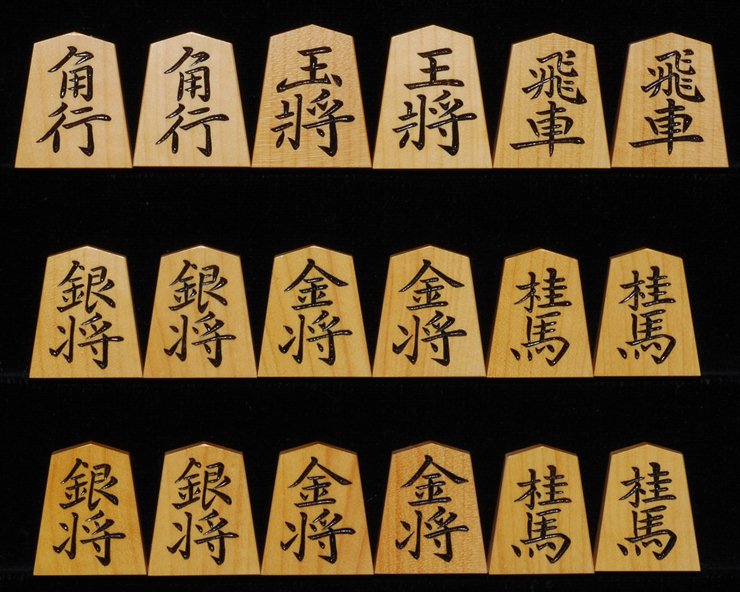 角行 角行 玉將 王將 飛車 飛車
銀将 銀将 金将 金将 桂馬 桂馬
銀将 銀将 金将 金将 桂馬 桂馬